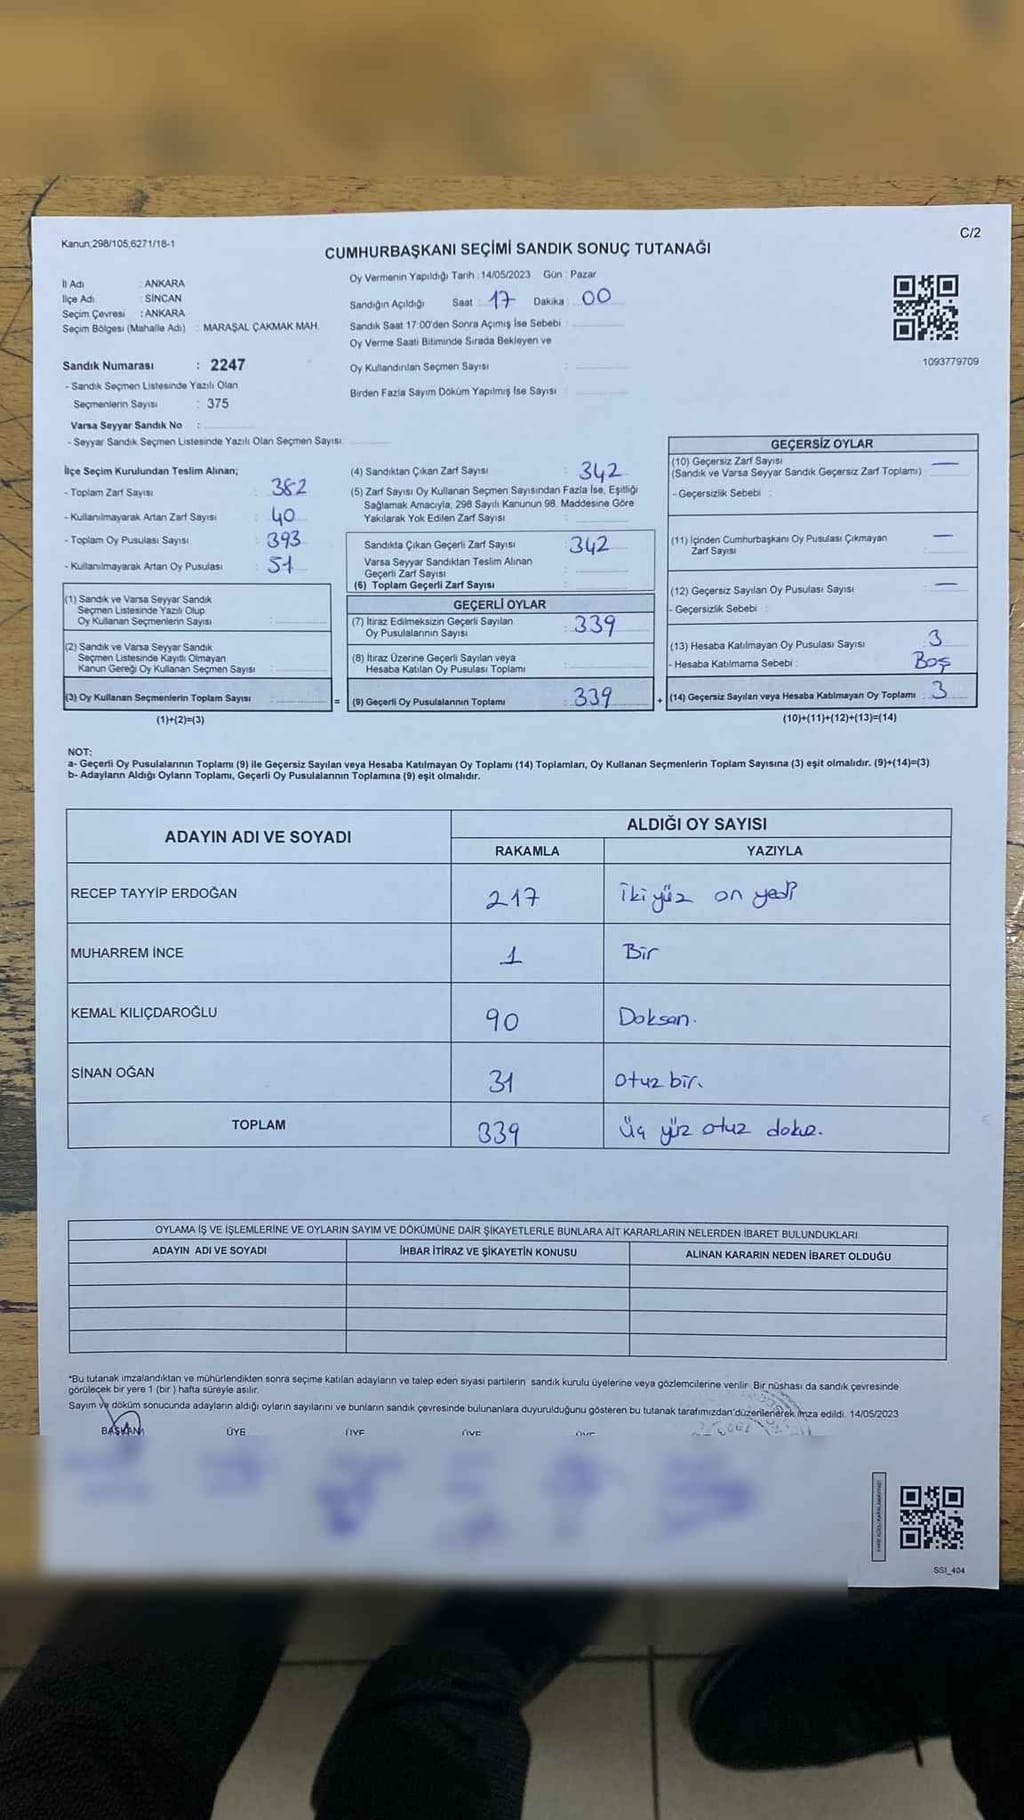 Kanun,298/105,6271/18-1
C/2
CUMHURBAŞKANI SEÇİMİ SANDIK SONUÇ TUTANAĞI
İl Adı : ANKARA
İlçe Adı : SİNCAN
Seçim Çevresi : ANKARA
Seçim Bölgesi (Mahalle Adı) : MARAŞAL ÇAKMAK MAH.
Oy Vermenin Yapıldığı Tarih : 14/05/2023 Gün : Pazar
Sandığın Açıldığı Saat : 17 Dakika : 00
Sandık Saat 17:00'den Sonra Açımış İse Sebebi :
Oy Verme Saati Bitiminde Sırada Bekleyen ve
Oy Kullandırılan Seçmen Sayısı :
Birden Fazla Sayım Döküm Yapılmış İse Sayısı :
1093779709
Sandık Numarası : 2247
- Sandık Seçmen Listesinde Yazılı Olan
Seçmenlerin Sayısı : 375
Varsa Seyyar Sandık No :
- Seyyar Sandık Seçmen Listesinde Yazılı Olan Seçmen Sayısı:
İlçe Seçim Kurulundan Teslim Alınan;
- Toplam Zarf Sayısı : 382
- Kullanılmayarak Artan Zarf Sayısı : 40
- Toplam Oy Pusulası Sayısı : 393
- Kullanılmayarak Artan Oy Pusulası : 51
(1) Sandık ve Varsa Seyyar Sandık
Seçmen Listesinde Yazılı Olup
Oy Kullanan Seçmenlerin Sayısı :
(2) Sandık ve Varsa Seyyar Sandık
Seçmen Listesinde Kayıtlı Olmayan
Kanun Gereği Oy Kullanan Seçmen Sayısı :
(3) Oy Kullanan Seçmenlerin Toplam Sayısı : =
(1)+(2)=(3)
(4) Sandıktan Çıkan Zarf Sayısı : 342
(5) Zarf Sayısı Oy Kullanan Seçmen Sayısından Fazla İse, Eşitliği
Sağlamak Amacıyla; 298 Sayılı Kanunun 98. Maddesine Göre
Yakılarak Yok Edilen Zarf Sayısı :
Sandıkta Çıkan Geçerli Zarf Sayısı : 342
Varsa Seyyar Sandıktan Teslim Alınan
Geçerli Zarf Sayısı :
(6) Toplam Geçerli Zarf Sayısı :
GEÇERLİ OYLAR
(7) İtiraz Edilmeksizin Geçerli Sayılan
Oy Pusulalarının Sayısı : 339
(8) İtiraz Üzerine Geçerli Sayılan veya
Hesaba Katılan Oy Pusulası Toplamı :
(9) Geçerli Oy Pusulalarının Toplamı : 339 +
GEÇERSİZ OYLAR
(10) Geçersiz Zarf Sayısı : —
(Sandık ve Varsa Seyyar Sandık Geçersiz Zarf Toplamı)
- Geçersizlik Sebebi :
(11) İçinden Cumhurbaşkanı Oy Pusulası Çıkmayan
Zarf Sayısı : —
(12) Geçersiz Sayılan Oy Pusulası Sayısı : —
- Geçersizlik Sebebi :
(13) Hesaba Katılmayan Oy Pusulası Sayısı : 3
- Hesaba Katılmama Sebebi : Boş
(14) Geçersiz Sayılan veya Hesaba Katılmayan Oy Toplamı : 3
(10)+(11)+(12)+(13)=(14)
NOT:
a- Geçerli Oy Pusulalarının Toplamı (9) ile Geçersiz Sayılan veya Hesaba Katılmayan Oy Toplamı (14) Toplamları, Oy Kullanan Seçmenlerin Toplam Sayısına (3) eşit olmalıdır. (9)+(14)=(3)
b- Adayların Aldığı Oyların Toplamı, Geçerli Oy Pusulalarının Toplamına (9) eşit olmalıdır.
ADAYIN ADI VE SOYADI ALDIĞI OY SAYISI
RAKAMLA YAZIYLA
RECEP TAYYİP ERDOĞAN 217 İki yüz on yedi
MUHARREM İNCE 1 Bir
KEMAL KILIÇDAROĞLU 90 Doksan.
SİNAN OĞAN 31 otuz bir.
TOPLAM 339 Üç yüz otuz dokuz.
OYLAMA İŞ VE İŞLEMLERİNE VE OYLARIN SAYIM VE DÖKÜMÜNE DAİR ŞİKAYETLERLE BUNLARA AİT KARARLARIN NELERDEN İBARET BULUNDUKLARI
ADAYIN ADI VE SOYADI İHBAR İTİRAZ VE ŞİKAYETİN KONUSU ALINAN KARARIN NEDEN İBARET OLDUĞU
*Bu tutanak imzalandıktan ve mühürlendikten sonra seçime katılan adayların ve talep eden siyasi partilerin sandık kurulu üyelerine veya gözlemcilerine verilir. Bir nüshası da sandık çevresinde
görülecek bir yere 1 (bir ) hafta süreyle asılır.
Sayım ve döküm sonucunda adayların aldığı oyların sayılarını ve bunların sandık çevresinde bulunanlara duyurulduğunu gösteren bu tutanak tarafımızdan düzenlenerek imza edildi. 14/05/2023
BAŞKAN ÜYE ÜYE ÜYE ÜYE
SSI_404